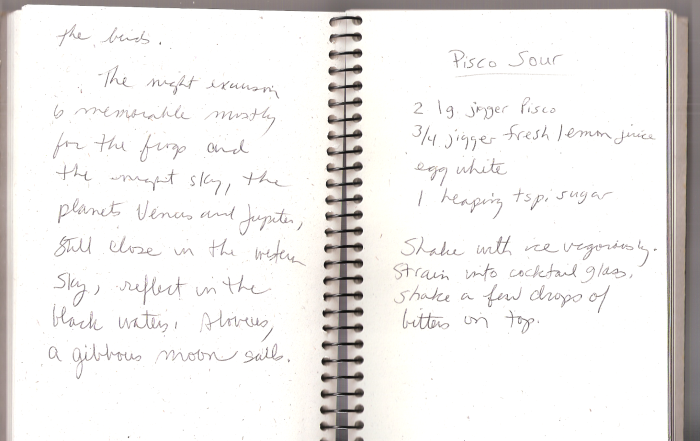 the birds.
The night excursion
is memorable mostly
for the frogs and
the night sky, the
planets Venus and Jupiter,
still close in the western
sky, reflect in the
black waters. Above us,
a gibbous moon sails.
Pisco Sour
2 lg jigger Pisco
3/4 jigger fresh lemon juice
egg white
1 heaping tsp. sugar
Shake with ice vigorously.
Strain into cocktail glass.
Shake a few drops of
bitters on top.